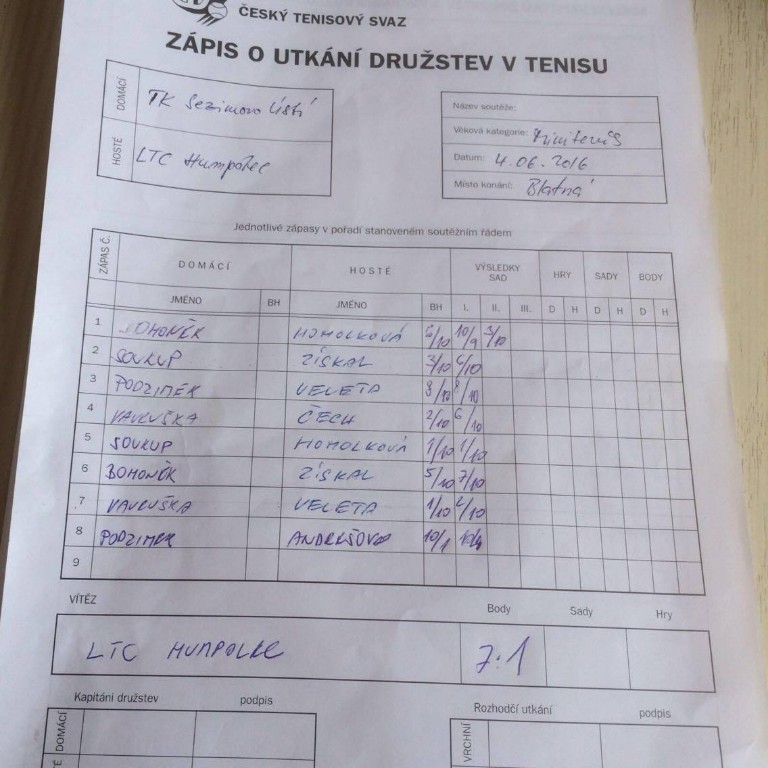 ČESKÝ TENISOVÝ SVAZ
ZÁPIS O UTKÁNÍ DRUŽSTEV V TENISU
DOMÁCÍ TK Sezimovo Ústí
HOSTÉ LTC Humpolec
Název soutěže:
Věková kategorie: Minitenis
Datum: 4.06.2016
Místo konání: Blatná
Jednotlivé zápasy v pořadí stanoveném soutěžním řádem
ZÁPAS Č. DOMÁCÍ HOSTÉ VÝSLEDKY SAD HRY SADY BODY
JMÉNO BH JMÉNO BH I. II. III. D H D H D H
1 BOHONĚK HOMOLKOVÁ 6/10 10/9 5/10
2 SOUKUP ZÍSKAL 3/10 6/10
3 PODZIMEK VELETA 8/10 8/10
4 VAVRUŠKA ČECH 2/10 6/10
5 SOUKUP HOMOLKOVÁ 1/10 1/10
6 BOHONĚK ZÍSKAL 5/10 7/10
7 VAVRUŠKA VELETA 1/10 2/10
8 PODZIMEK 10/1 10/4
9
VÍTĚZ Body Sady Hry
LTC HUMPOLEC 7:1
Kapitáni družstev podpis Rozhodčí utkání podpis
DOMÁCÍ VRCHNÍ